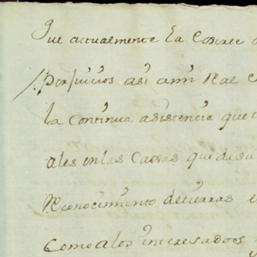 Que actualmente la Corre
Perjuicios asi ami Rl
la Continua asistencia que
ales en las Casas que de su
Reconocimiento de tierras
Como a los interesados